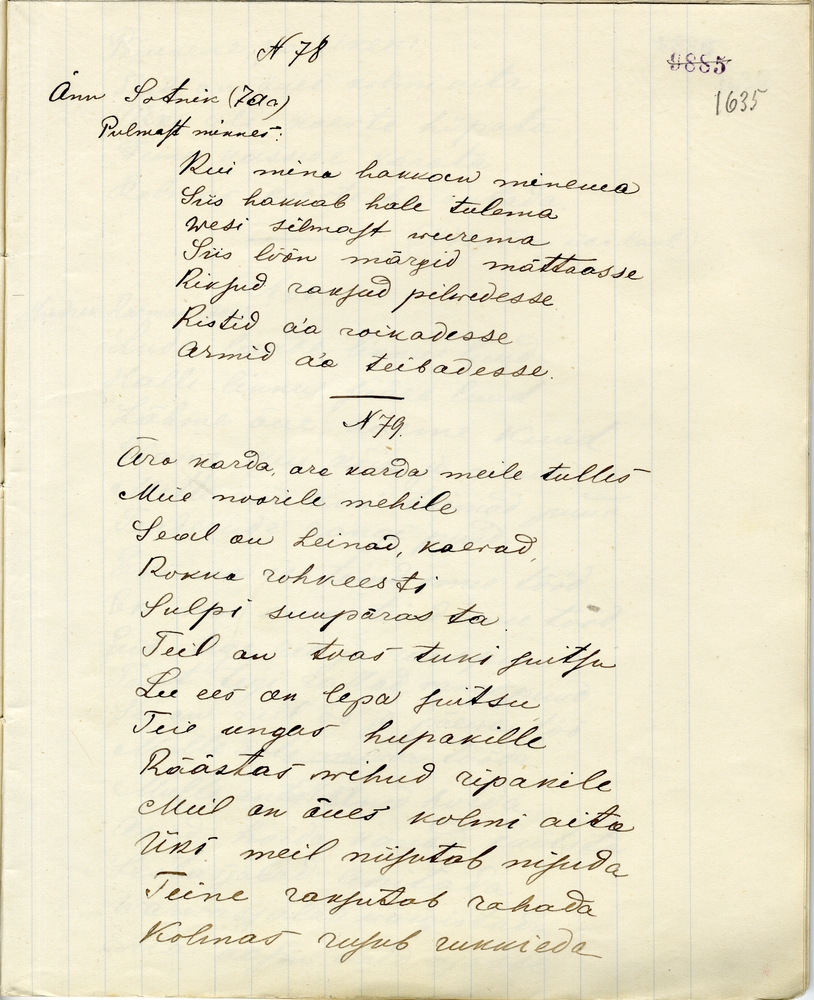 N 78
9885
1635
Ann Sotnik (70a)
Pulmast minnes:
Kui mina hakkan minema
Siis hakkab hale tulema
Wesi silmast weerema
Siis löön märgid mättaasse
Riksud raksud pilwedesse
Ristid a'a roikadesse
Armid a'a teibadesse.
N 79.
Ära karda, äre karda meile tulles
Meie noorile mehile
Seal on heinad, kaerad,
Rokka rohkeesti
Sulpi suupärasta
Teil on toas tuki suitsu
Lee ees on lepa suitsu
Teie ungas hupakille
Räästas wihud ripakile
Meil on õues kolmi aita
Üks meil niisutab nisuda
Teine raksutab rahada
Kolmas rusub rukkieda